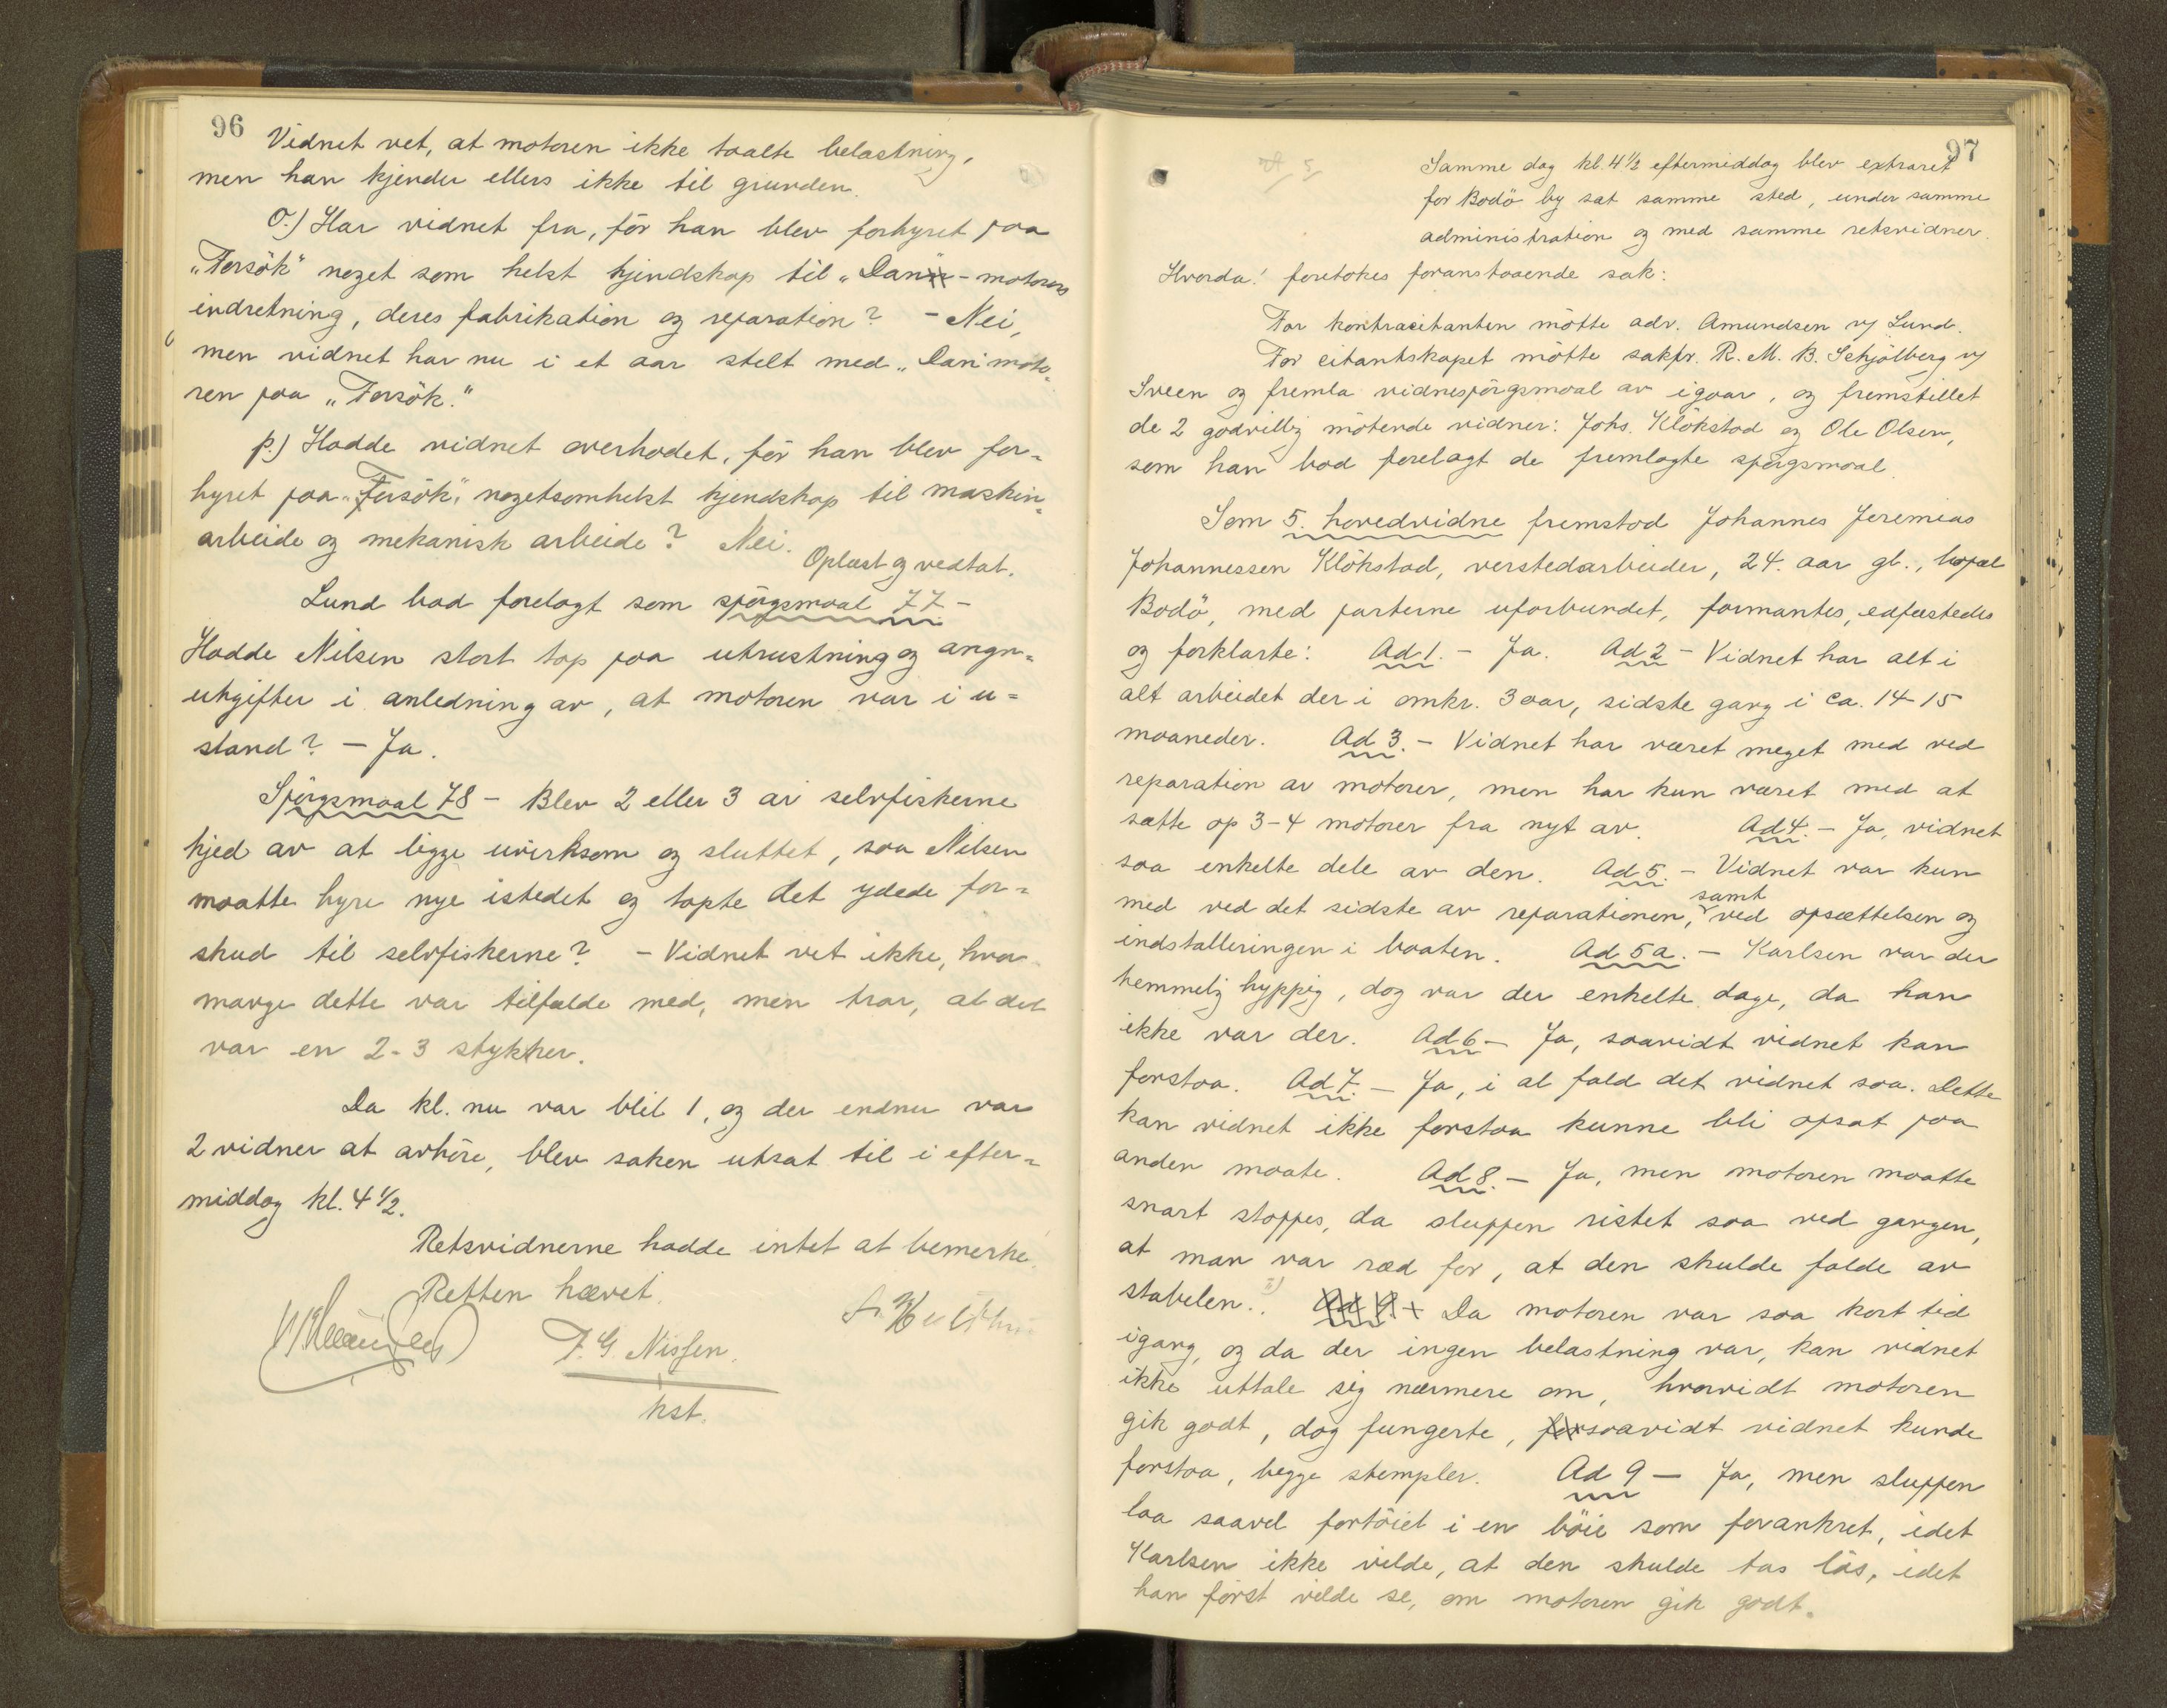 96
Vidnet vet, at motoren ikke taalte belastning,
men han kjender ellers ikke til grunden.
O.) Har vidnet fra, för han blev forhyret paa
„Forsök" noget som helst kjendskap til „Dan"-motorers
indretning, deres fabrikation og reparation? - Nei,
men vidnet har nu i et aar stelt med „Dan"moto-
ren paa „Forsök."
p.) Hadde vidnet overhodet, för han blev for-
hyret paa „Forsök" nogetsomhelst kjendskap til maskin-
arbeide og mekanisk arbeide? Nei.
Oplæst og vedtat.
Lund bad forelagt som spörgsmaal 77 -
Hadde Nilsen stort tap paa utrustning og angn-
utgifter i anledning av, at motoren var i u-
stand? - Ja.
Spörgsmaal 78 - Blev 2 eller 3 av selvfiskerne
kjed av at ligge uvirksom og sluttet, saa Nilsen
maatte hyre nye istedet og tapte det ydede for-
skud til selvfiskerne? - Vidnet vet ikke, hvor
mange dette var tilfælde med, men tror, at det
var en 2-3 stykker.
Da kl. nu var blit 1, og der endnu var
2 vidner at avhöre, blev saken utsat til i efter-
middag kl. 4 1/2.
Retsvidnerne hadde intet at bemerke.
Retten hævet.
F. G. Nissen.
kst.
97
Samme dag kl. 4 1/2 eftermiddag blev extraret
for Bodö by sat samme sted, under samme
administration og med samme retsvidner.
Hvorda! foretokes foranstaaende sak:
For kontracitanten mötte adv. Amundsen v/ Lund.
For citantskapet mötte sakför. R. M. B. Schjölberg v/
Sveen og fremla vidnespörgsmaal av igaar, og fremstillet
de 2 godvillig mötende vidner: Johs. Klökstad og Ole Olsen,
som han bad forelagt de fremlagte spörgsmaal.
Som 5. hovedvidne fremstod Johannes Jeremias
Johannessen Klökstad, verstedarbeider, 24. aar gl., bopæl
Bodö, med parterne uforbundet, formantes, edfæstedes
og forklarte: Ad 1. - Ja. Ad 2 - Vidnet har alt i
alt arbeidet der i omkr. 3 aar, sidste gang i ca. 14-15
maaneder. Ad 3. - Vidnet har været meget med ved
reparation av motorer, men har kun været med at
sætte op 3-4 motorer fra nyt av. Ad 4. - Ja, vidnet
saa enkelte dele av den. Ad 5. - Vidnet var kun
med ved det sidste av reparationen, samt ved opsættelsen og
indstalleringen i baaten. Ad 5a. - Karlsen var der
temmelig hyppig, dog var der enkelte dage, da han
ikke var der. Ad 6 - Ja, saavidt vidnet kan
forstaa. Ad 7. - Ja, i al fald det vidnet saa. Dette
kan vidnet ikke forstaa kunne bli opsat paa
anden maate. Ad 8. - Ja, men motoren maatte
snart stoppes, da sluppen ristet saa ved gangen,
at man var ræd for, at den skulde falde av
stabelen. Ad 9. - Da motoren var saa kort tid
igang, og da der ingen belastning var, kan vidnet
ikke uttale sig nærmere om, hvorvidt motoren
gik godt, dog fungerte, for saavidt vidnet kunde
forstaa, begge stempler. Ad 9 - Ja, men sluppen
laa saavel fortöiet i en böie som forankret, idet
Karlsen ikke vilde, at den skulde tas lös, idet
han först vilde se, om motoren gik godt.